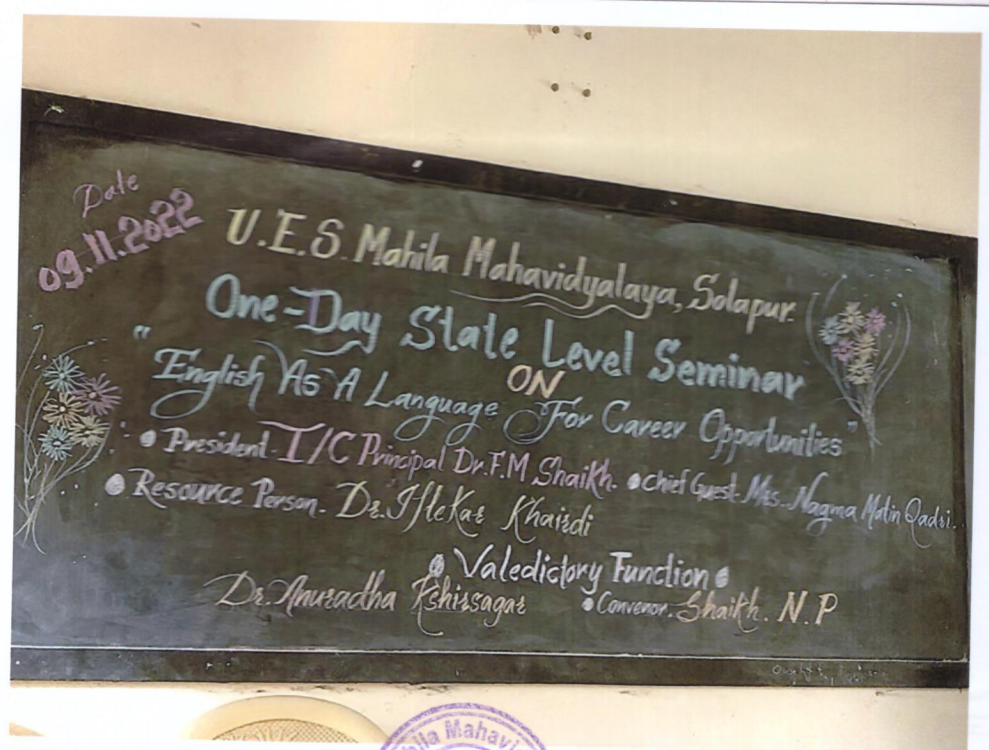 Date
09.11.2022
U.E.S. Mahila Mahavidyalaya, Solapur.
One-Day State Level Seminar
ON
"English As A Language For Career Opportunities"
• President - I/C Principal Dr. F.M Shaikh. • Chief Guest - Mrs. Nagma Matin Qadri.
• Resource Person - Dr. Iftekar Khairdi
• Valedictory Function •
Dr. Anuradha Kshirsagar • Convenor. Shaikh. N.P
hila Mahavi